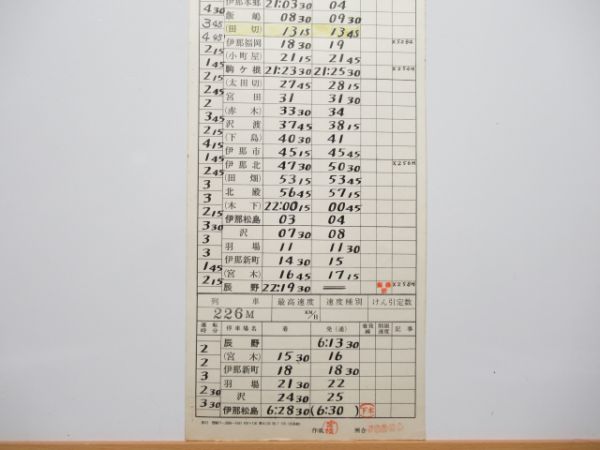 伊那本郷 21:03 30 04
4 30 飯嶋 08 30 09 30
3 45 (田切) 13 15 13 45
4 45 伊那福岡 18 30 19
2 15 (小町屋) 21 15 21 45
1 45 駒ケ根 21:23 30 21:25 30
2 15 (太田切) 27 45 28 15
2 45 宮田 31 31 30
2 (赤木) 33 30 34
3 45 沢渡 37 45 38 15
2 15 (下島) 40 30 41
4 15 伊那市 45 15 45 45
1 45 伊那北 47 30 50 30
2 45 (田畑) 53 15 53 45
3 北殿 56 45 57 15
3 (木下) 22:00 15 00 45
2 15 伊那松島 03 04
3 30 沢 07 30 08
3 羽場 11 11 30
3 伊那新町 14 30 15
1 45 (宮木) 16 45 17 15
2 15 辰野 22:19 30
列車 最高速度 速度種別 けん引定数
226M KM/H
運転時分 停車場名 着 発(通) 着発線 制限速度 記事
辰野 6:13 30
2 (宮木) 15 30 16
2 伊那新町 18 18 30
3 羽場 21 30 22
2 30 沢 24 30 25
3 30 伊那松島 6:28 30 (6:30) 下本
作成 照合